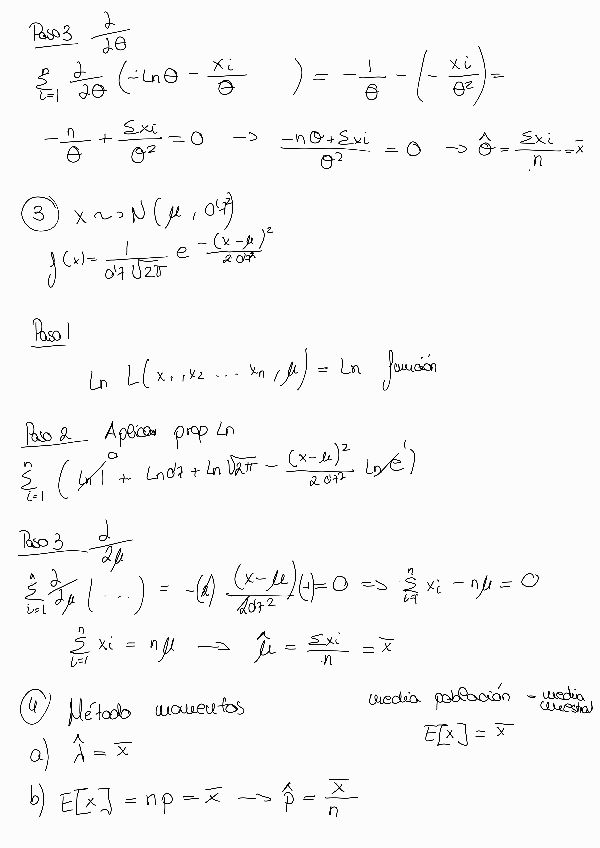 Paso 3 ∂/∂θ
∑_{i=1}^{n} ∂/∂θ (-Ln θ - xi/θ ) = -1/θ - (- xi/θ²) =
-n/θ + Σxi/θ² = 0 → -nθ + Σxi/θ² = 0 → θ̂ = Σxi/n = x̄
③ x ~> N(μ, 0'7²)
f(x) = 1/(0'7 √2π) e^{-(x-μ)²/2 0'7²}
Paso 1
Ln L(x₁, x₂ ... xn, μ) = Ln función
Paso 2 Aplicar prop Ln
∑_{i=1}^{n} (Ln 1⁰ + Ln 0'7 + Ln √2π - (x-μ)²/2 0'7² Ln e¹)
Paso 3 ∂/∂μ
∑_{i=1}^{n} ∂/∂μ (...) = -(2) (x-μ)/2 0'7² (-1) = 0 => ∑_{i=1}^{n} xi - nμ = 0
∑_{i=1}^{n} xi = nμ → μ̂ = Σxi/n = x̄
④ Método momentos
media población = media muestral
E[x] = x̄
a) λ̂ = x̄
b) E[x] = np = x̄ → p̂ = x̄/n